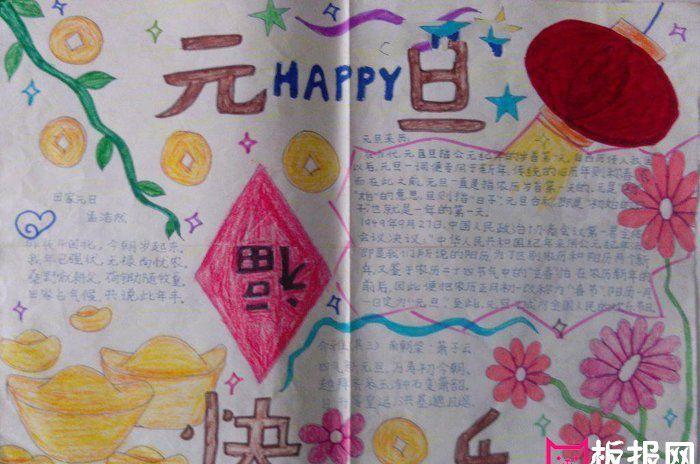 元
HAPPY
旦
田家元日
孟浩然
昨夜斗回北,今朝岁起东。
我年已强状,无禄尚忧农。
桑野就耕父,荷锄随牧童。
田家占气候,共说此年丰。
元旦来历:
元旦一词便专用于新年,传统的旧历年则称春
而在此之前,元旦一直是指农历岁首第一天的。元是
"始"的意思,旦则指"日子",元旦合称即是"初始的日
子,也就是一年的第一天。
1949年9月27日,中国人民政治协商会议第一届全体
会议决议:"中华人民共和国纪年采用公元纪年法
即是我们所说的阳历为了区别农历和阳历两个新
年,又鉴于农历二十四节气中的"立春"恰在农历新年的
前后,因此便把农历正月初一改称为"春节",阳历一月
一日定为"元旦",至此,元旦才成为全国人民的欢乐节日
福
萧子云
四气新元旦,万寿初今朝。
快
乐
板报网